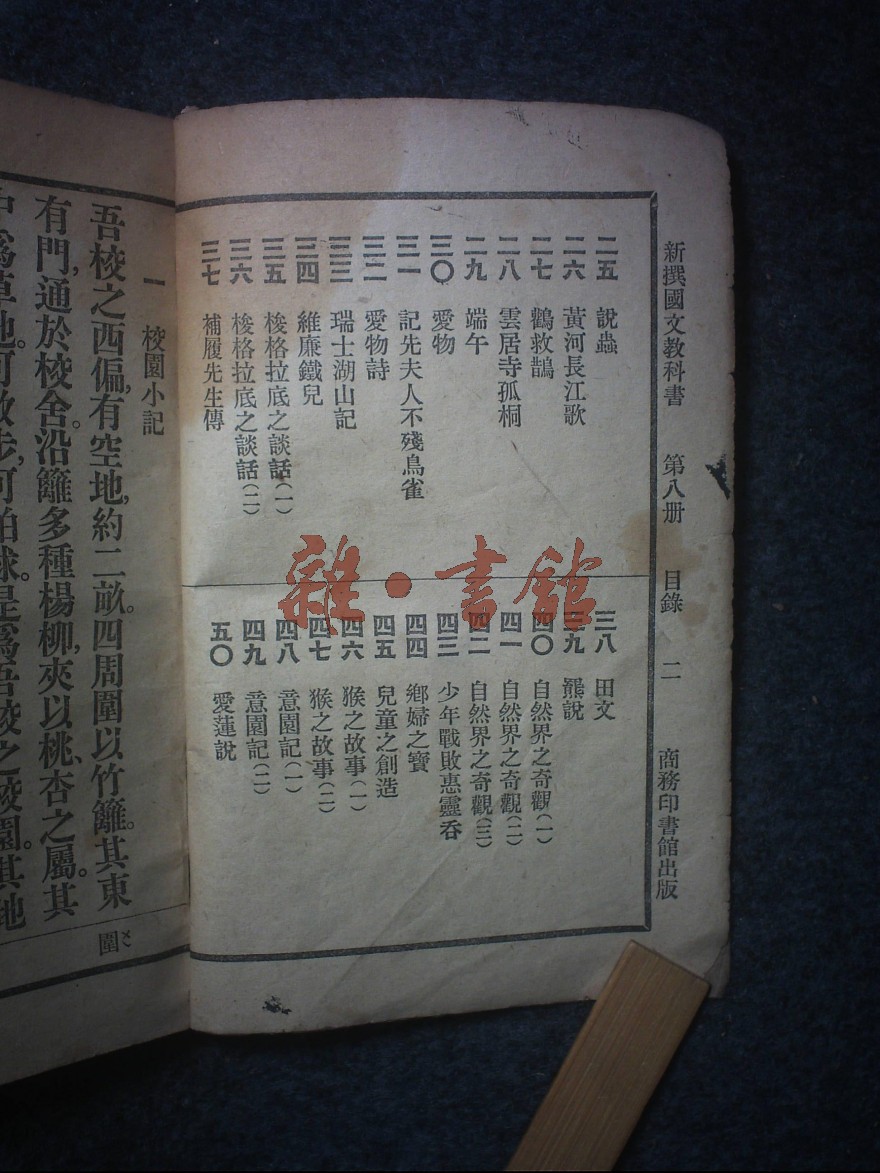 新撰國文教科書 第八册 目錄 二 商務印書館出版
二五 說蟲
二六 黃河長江歌
二七 鸛救鵲
二八 雲居寺孤桐
二九 端午
三〇 愛物
三一 記先夫人不殘鳥雀
三二 愛物詩
三三 瑞士湖山記
三四 維廉鐵兒
三五 梭格拉底之談話(一)
三六 梭格拉底之談話(二)
三七 補履先生傳
三八 田文
三九 羆說
四〇 自然界之奇觀(一)
四一 自然界之奇觀(二)
四二 自然界之奇觀(三)
四三 少年戰敗惠靈吞
四四 鄉婦之寶
四五 兒童之創造
四六 猴之故事(一)
四七 猴之故事(二)
四八 意園記(一)
四九 意園記(二)
五〇 愛蓮說
雜·書館
一 校園小記
吾校之西偏,有空地,約二畝。四周圍以竹籬。其東
有門,通於校舍。沿籬多種楊柳,夾以桃、杏之屬。其
中爲草地。可散步,可拍球。是爲吾校之校園。其地
圍